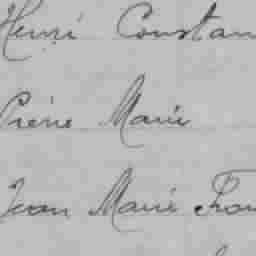 Henri Constan
Pierre Marie
Jean Marie Fran